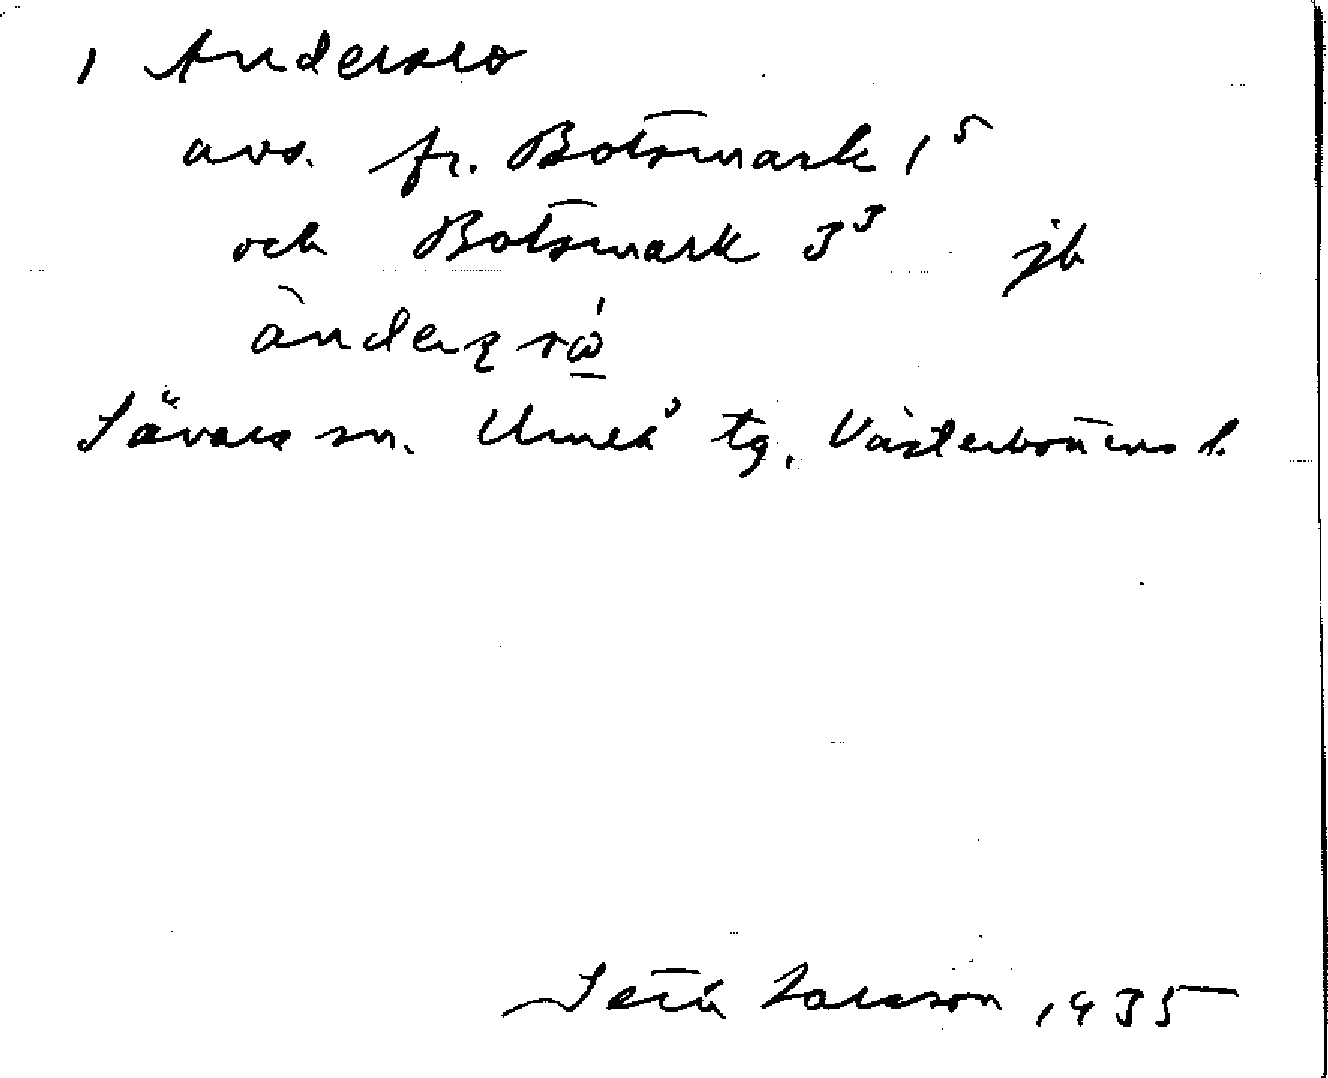 1 Andersro
avs. fr. Botsmark 1⁵
och Botsmark 3³ jb
Sävars sn. Umeå tg. Västerbottens l.
Seth Larsson 1935